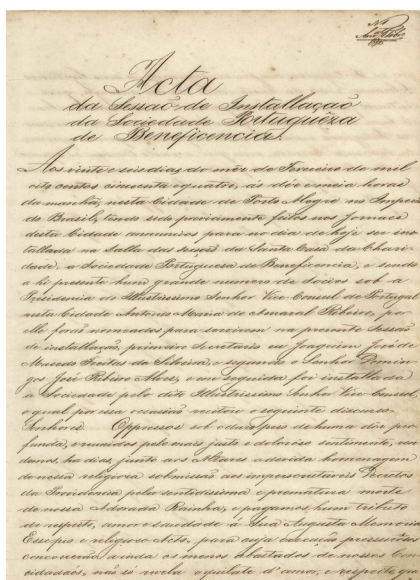 Acta
da Sessão de Installação
da Sociedade Portuguêza
de Beneficencia.
Aos vinte e seis dias do mêz de Fevereiro de mil
oito centos cincoenta e quatro, ás déz e meia horas
da manhã, nesta Cidade de Porto Alegre no Imperio
do Brazil, tendo sido previamente feitos nos Jornaes
desta Cidade annuncios para no dia de hoje ser ins-
tallada na Salla das Sessões da Santa Casa da Chari-
dade, a Sociedade Portuguesa de Beneficencia, e sendo
a hi presente hum grande numero de socios sob a
Presidencia do Illustrissimo Senhor Vice Consul de Portugal
nesta Cidade Antonio Maria do Amaral Ribeiro, por
elle forão nomeados para servirem na presente Sessão
de installação, primeiro Secretario eu Joaquim José de
Freitas da Silveira, e segundo o Senhor Domin-
gos José Ribeiro Alves, e em seguida foi installada
a Sociedade pelo dito Illustrissimo Senhor Vice Consul,
o qual por essa occasião recitou o seguinte discurso.
Senhores Oppressos sob o duro peso de huma dôr pro-
funda, e reunidos pelo mais justo e doloroso sentimento, ren-
demos, ha dias, junto aos Altares a devida homenagem
de nossa religiosa submissão aos imperscrutaveis Decretos
da Providencia pela sentidissima e prematura morte
de nossa Adorada Rainha, e pagamos hum tributo
de respeito, amor e saudade á Sua Augusta Memoria
Esse pio e religioso Acto, para cuja execução pressurosos
concorrerão ainda os menos abastados de nossos Con-
cidadãos, não só revela o quilate d'amor, e respeito, que